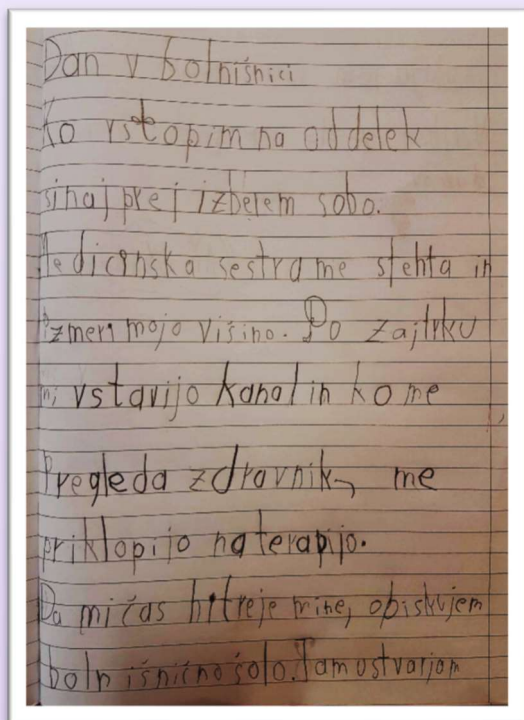 Dan v bolnišnici
Ko vstopim na oddelek
si najprej izberem sobo.
Medicinska sestra me stehta in
izmeri mojo višino. Po zajtrku
mi vstavijo kanal in ko me
pregleda zdravnik, me
priklopijo na terapijo.
Da mi čas hitreje mine, obiskujem
bolnišnično šolo. Tam ustvarjam